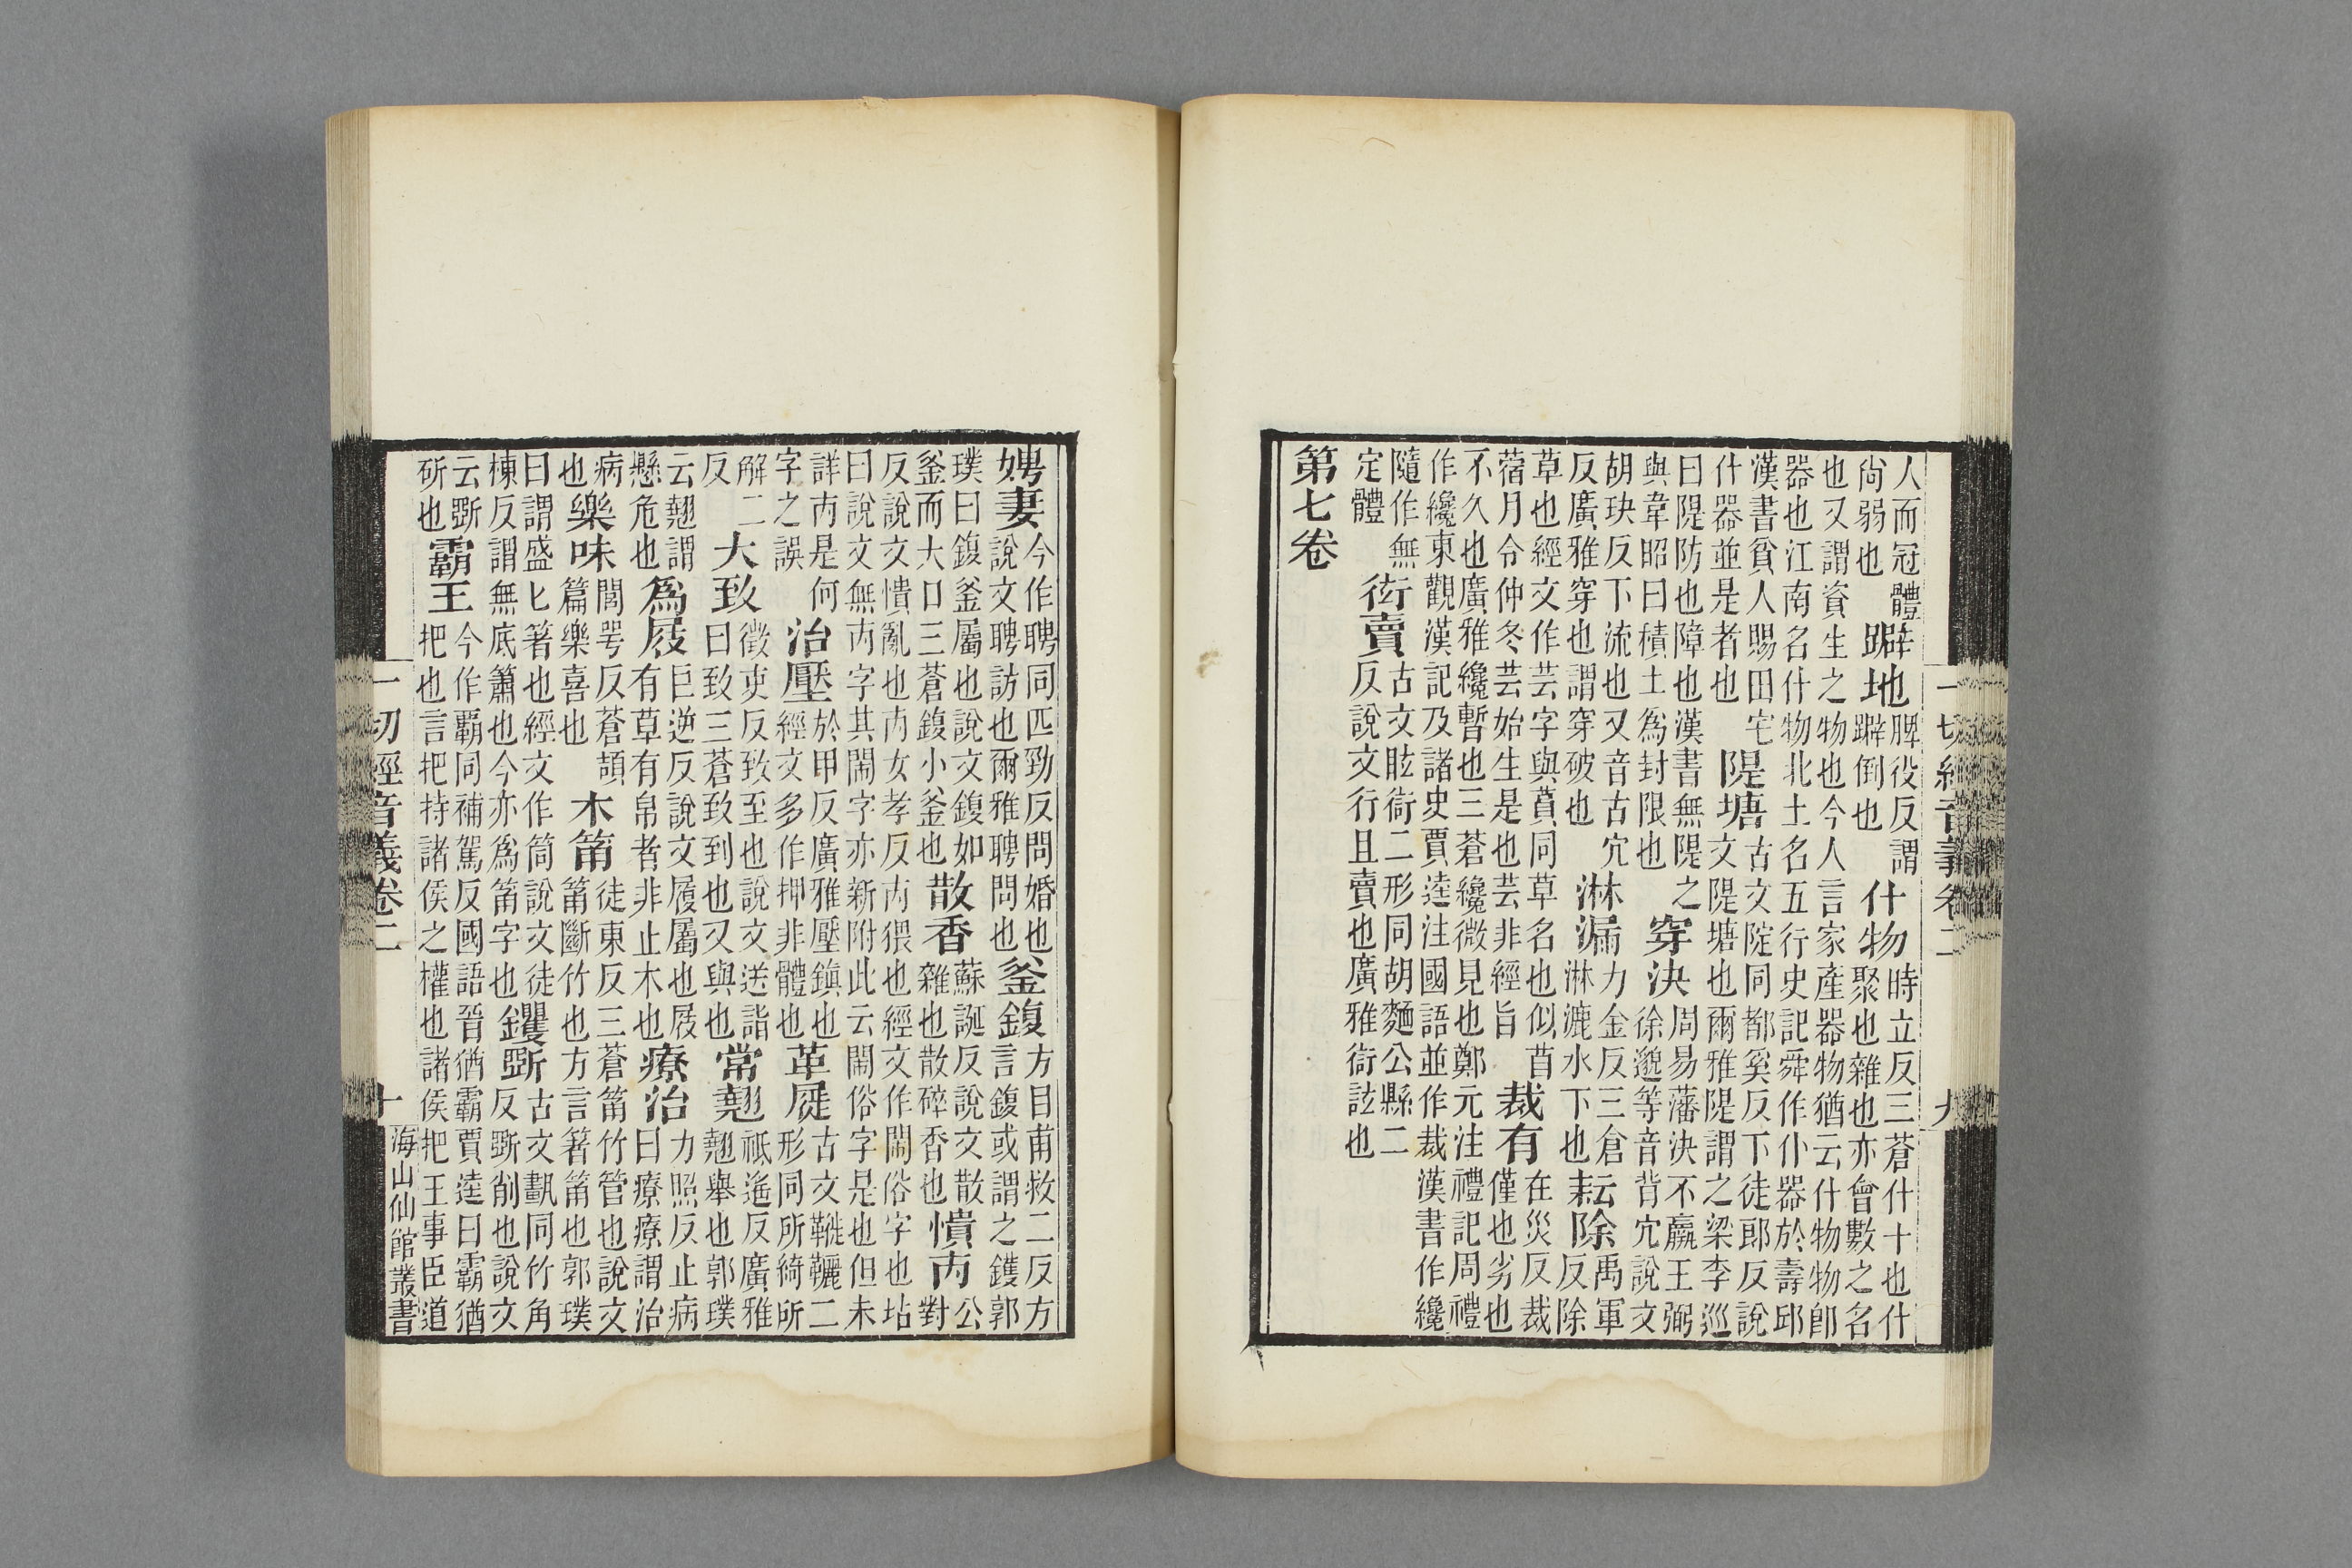 一切經音義卷二 九
人而冠體尚弱也躃地脾役反謂躃倒也什物時立反三蒼什十也什聚也雜也亦會數之名
也又謂資生之物也今人言家產器物猶云什物物即器也江南名什物北土名五行史記舜作什器於壽邱
漢書貧人賜田宅什器並是者也隄塘古文陮同都奚反下徒郎反說文隄塘也爾雅隄謂之梁李巡
曰隄防也障也漢書無隄之與韋昭曰積土爲封限也穿決周易藩決不羸王弼徐邈等音背宂說文
胡玦反下流也又音古宂反廣雅穿也謂穿破也淋漏力金反三倉淋漉水下也耘除禹軍反除
草也經文作芸字與蒷同草名也似苜蓿月令仲冬芸始生是也芸非經旨裁有在災反裁僅也劣也
不久也廣雅纔暫也三蒼纔微見也鄭元注禮記周禮作纔東觀漢記及諸史賈逵注國語並作裁漢書作纔
隨作無定體衒賣古文眩衒二形同胡麵公縣二反說文行且賣也廣雅衒詃也
第七卷
娉妻今作聘同匹勁反問婚也說文聘訪也爾雅聘問也釜鍑方目甫救二反方言鍑或謂之鑊郭
璞曰鍑釜屬也說文鍑如釜而大口三蒼鍑小釜也散香蘇誕反說文散雜也散碎香也憒丙公對
反說文憒亂也丙女孝反丙猥也經文作閙俗字也坫曰說文無丙字其閙字亦新附此云閙俗字是也但未
詳丙是何字之誤治壓於甲反廣雅壓鎮也經文多作押非體也革屣古文二形同所綺所
解二反大致徵吏反致至也說文送詣曰致三蒼致到也又與也常翹祇遙反廣雅翹舉也郭璞
云翹謂懸危也爲屐巨逆反說文履屬也屐有草有帛者非止木也療治力照反止病曰療療謂治
病也樂味閻咢反蒼頡篇樂喜也木筩徒東反三蒼筩竹管也說文筩斷竹也方言箸筩也郭璞
曰謂盛匕箸也經文作筒說文徒棟反謂無底簫也今亦爲筩字也钁斲古文同竹角反斲削也說文
云斲斫也霸王今作覇同補駕反國語晉猶霸賈逵曰霸猶把也言把持諸侯之權也諸侯把王事臣道
一切經音義卷二 十 海山仙館叢書